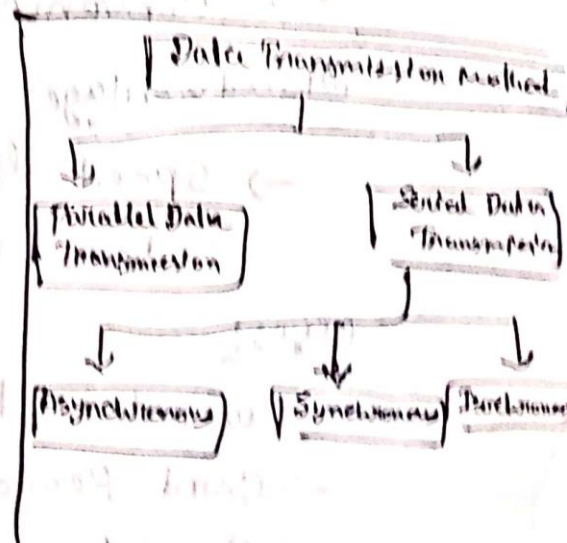 Data Transmission Method
Parallel Data
Transmission
Serial Data
Transmission
Asynchronous
Synchronous